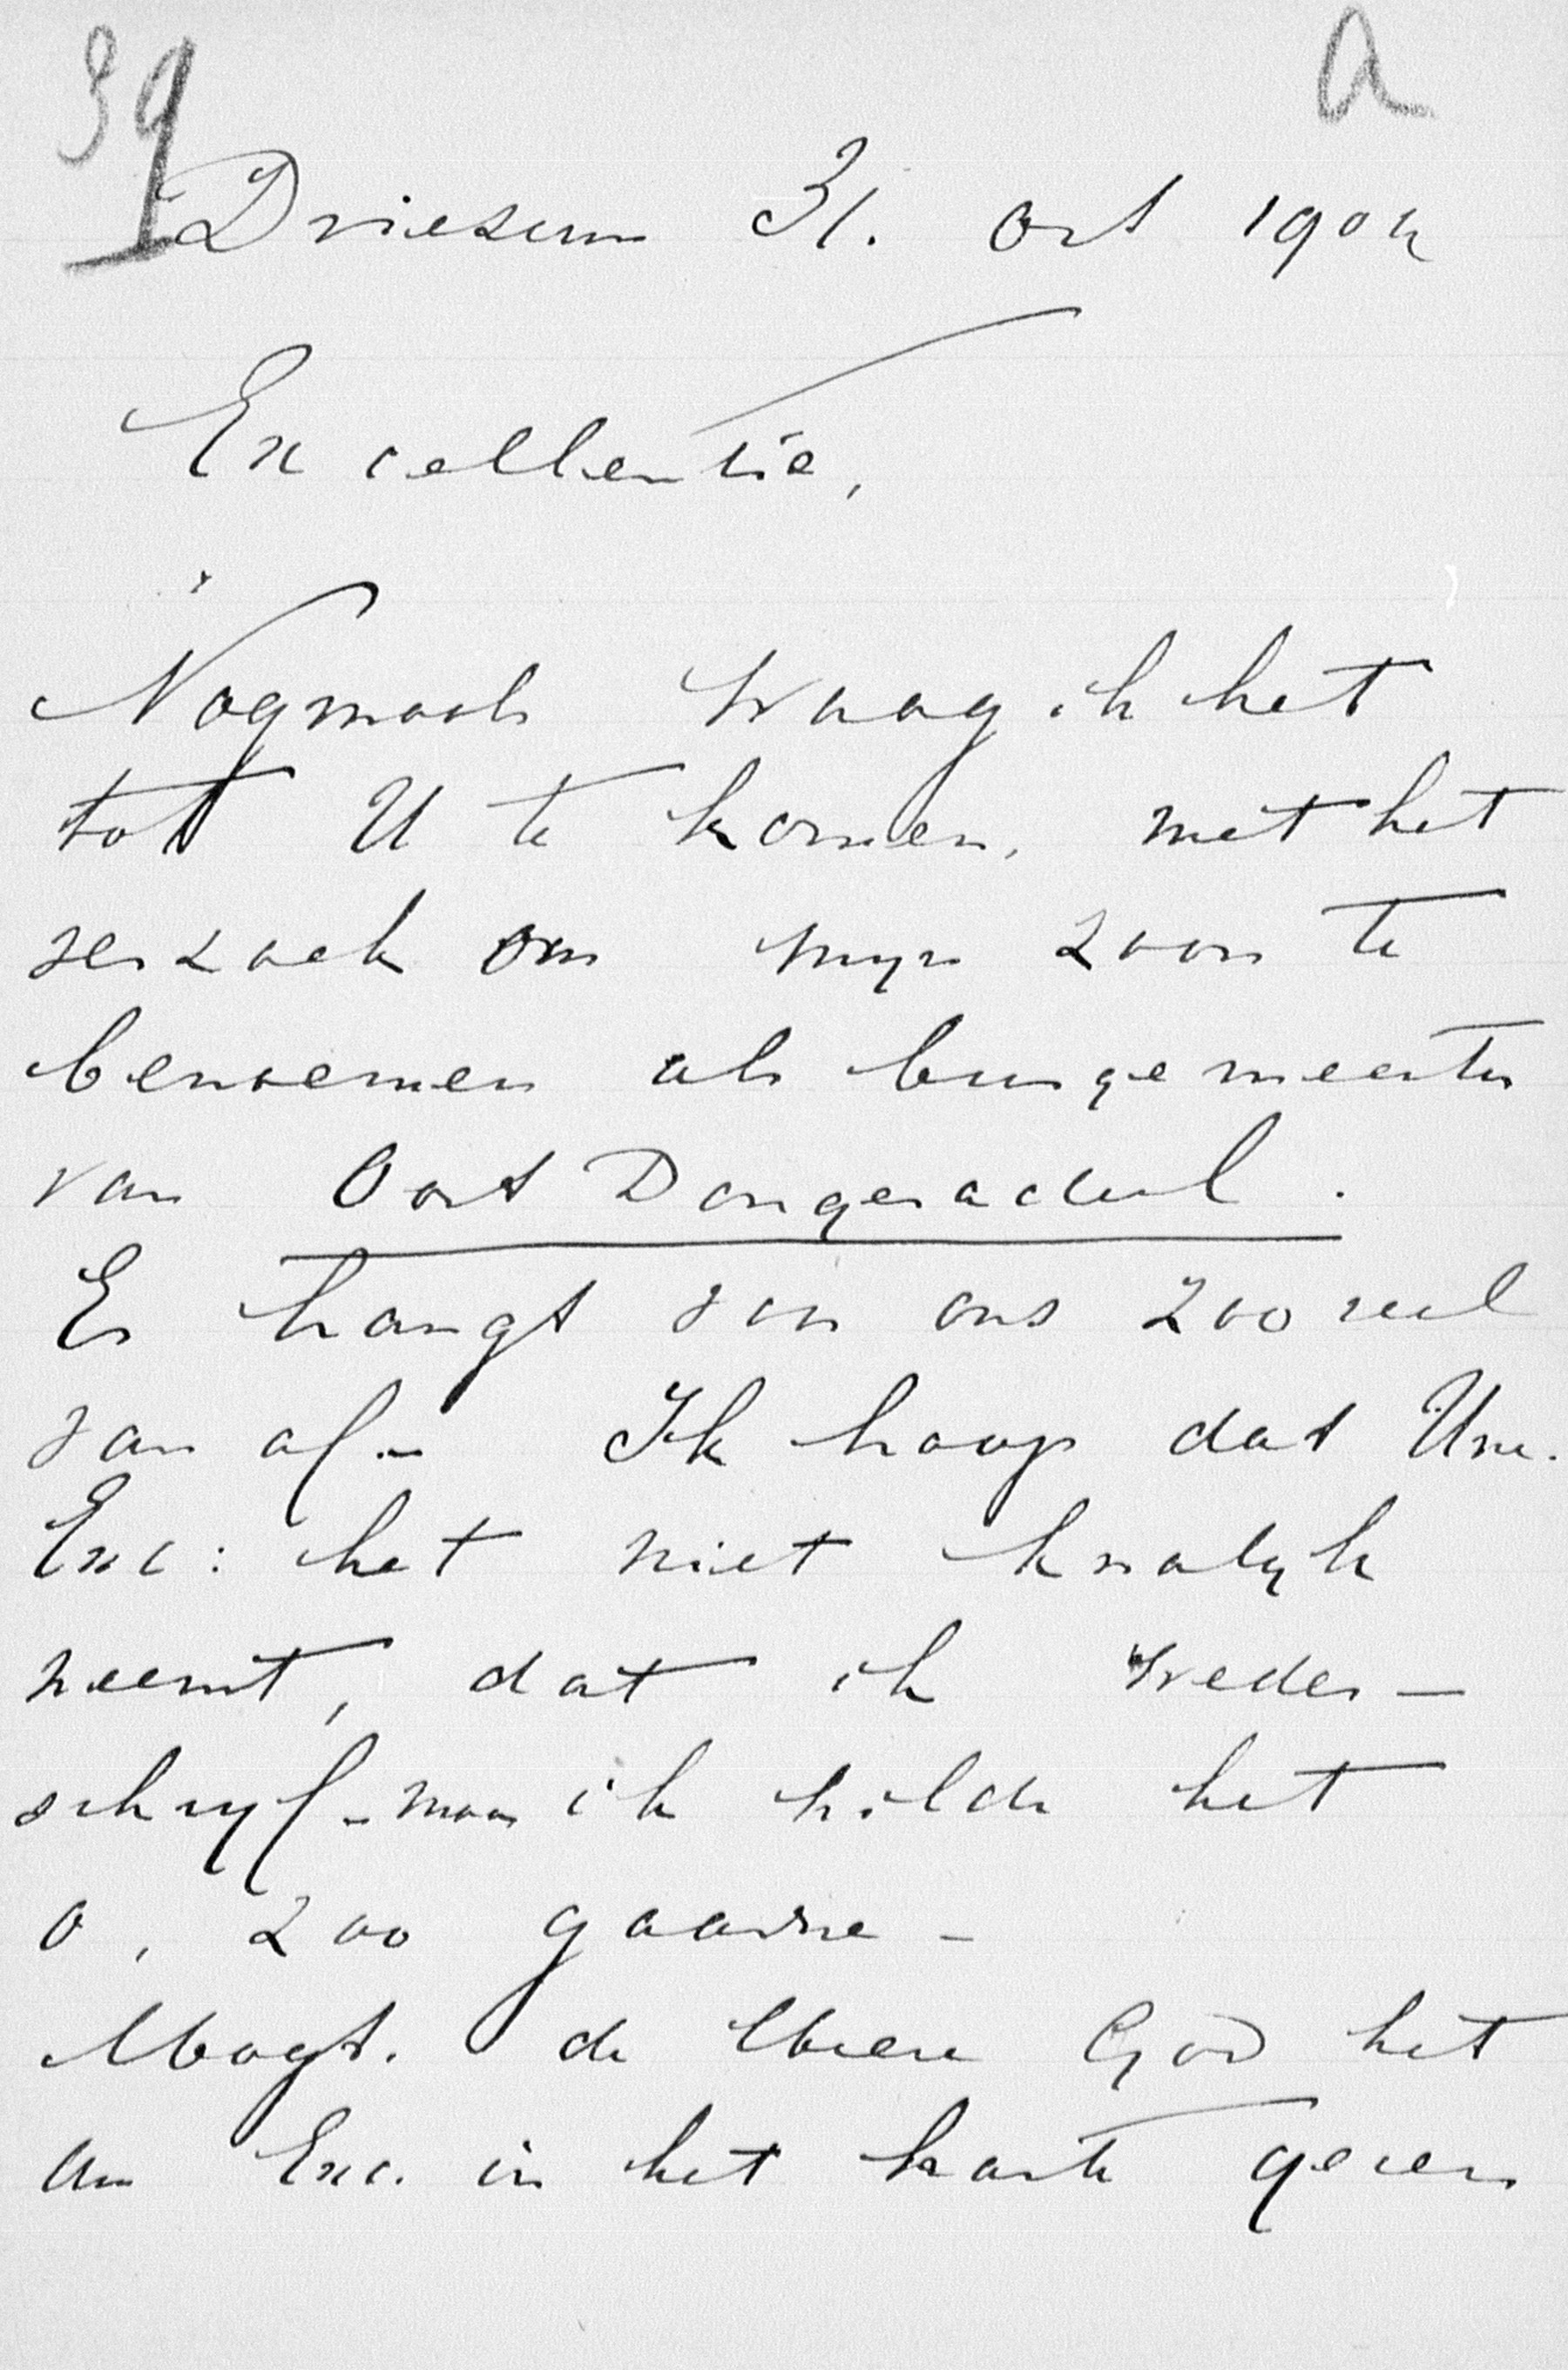 39 a
Driesum 31. Oct 1904
Excellentie,
Nogmaals waag ik het
tot U te komen, met het
verzoek om myn zoon te
benoemen als burgemeester
van Oost Dongeradeel.
Er hangt voor ons zooveel
van af – Ik hoop dat Uw.
Exc: het niet kwalyk
neemt, dat ik weder –
schryf – maar ik wilde het
o, zoo gaarne –
Mogt. de Heere God het
Uw Exc. in het harte geven